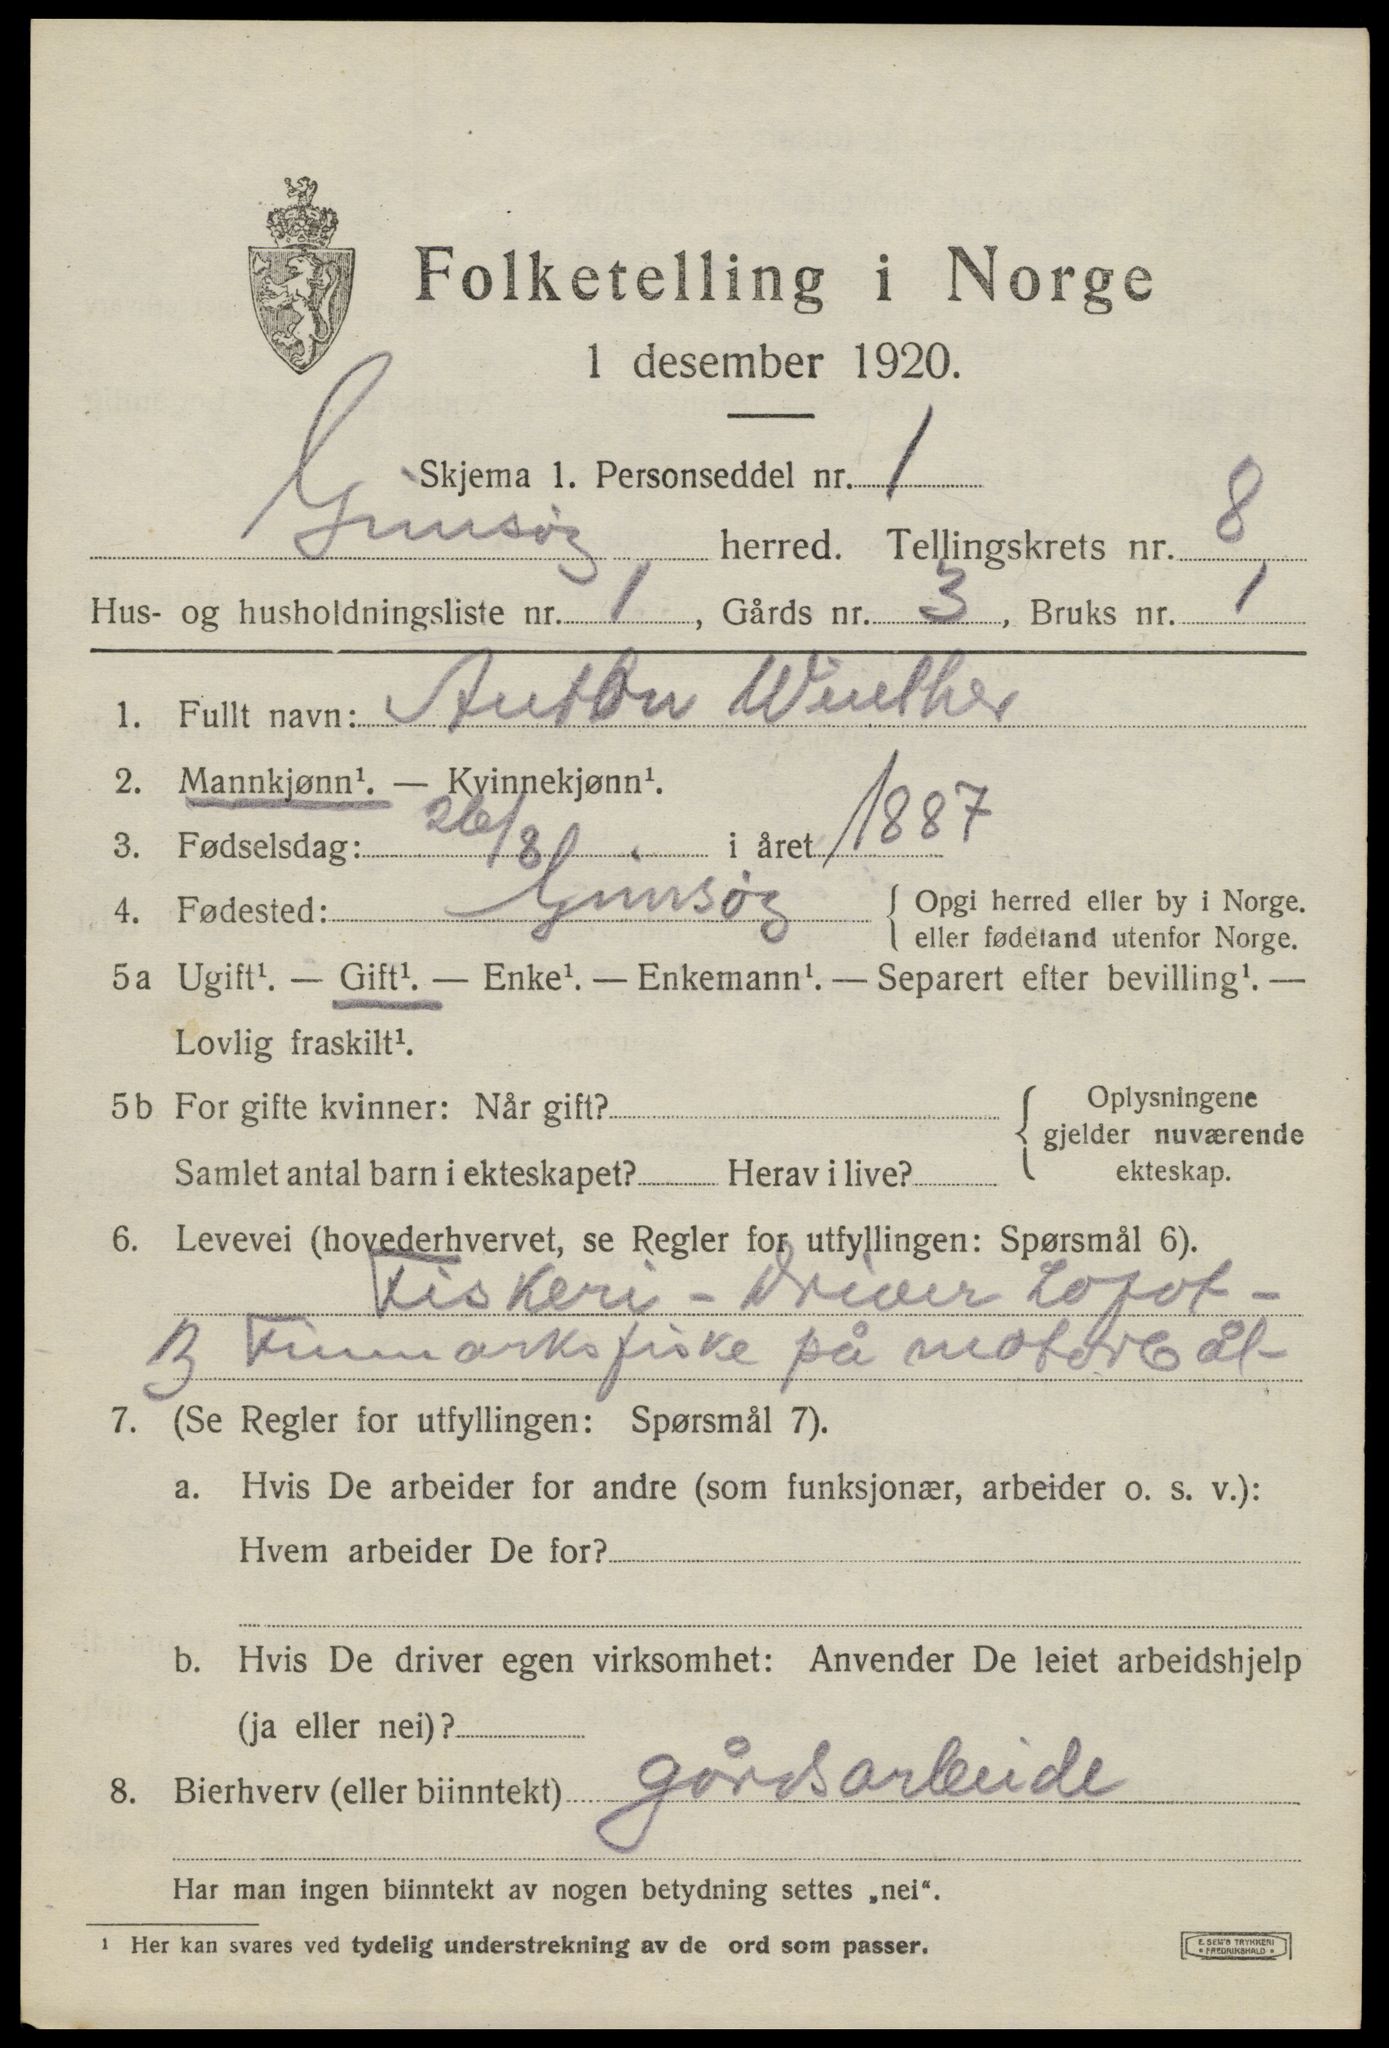 Folketelling i Norge
1 desember 1920.
Skjema 1. Personseddel nr. 1
Gimsøy herred. Tellingskrets nr. 8
Hus- og husholdningsliste nr. 1, Gårds nr. 3, Bruks nr. 1
1. Fullt navn: Anton Winther
2. Mannkjønn¹. — Kvinnekjønn¹.
3. Fødselsdag: 26/8 i året 1887
4. Fødested: Gimsøy { Opgi herred eller by i Norge.
eller fødeland utenfor Norge.
5a Ugift¹. — Gift¹. — Enke¹. — Enkemann¹. — Separert efter bevilling¹. —
Lovlig fraskilt¹.
5b For gifte kvinner: Når gift? { Oplysningene
gjelder nuværende
Samlet antal barn i ekteskapet? Herav i live? ekteskap.
6. Levevei (hovederhvervet, se Regler for utfyllingen: Spørsmål 6).
Fiskeri - Driver Lofot -
B Finmarksfiske på motorbåt -
7. (Se Regler for utfyllingen: Spørsmål 7).
a. Hvis De arbeider for andre (som funksjonær, arbeider o. s. v.):
Hvem arbeider De for?
b. Hvis De driver egen virksomhet: Anvender De leiet arbeidshjelp
(ja eller nei)?
8. Bierhverv (eller biinntekt) gårdsarbeide
Har man ingen biinntekt av nogen betydning settes „nei“.
¹ Her kan svares ved tydelig understrekning av de ord som passer.
E. SEM'S TRYKKERI
• FREDRIKSHALD •